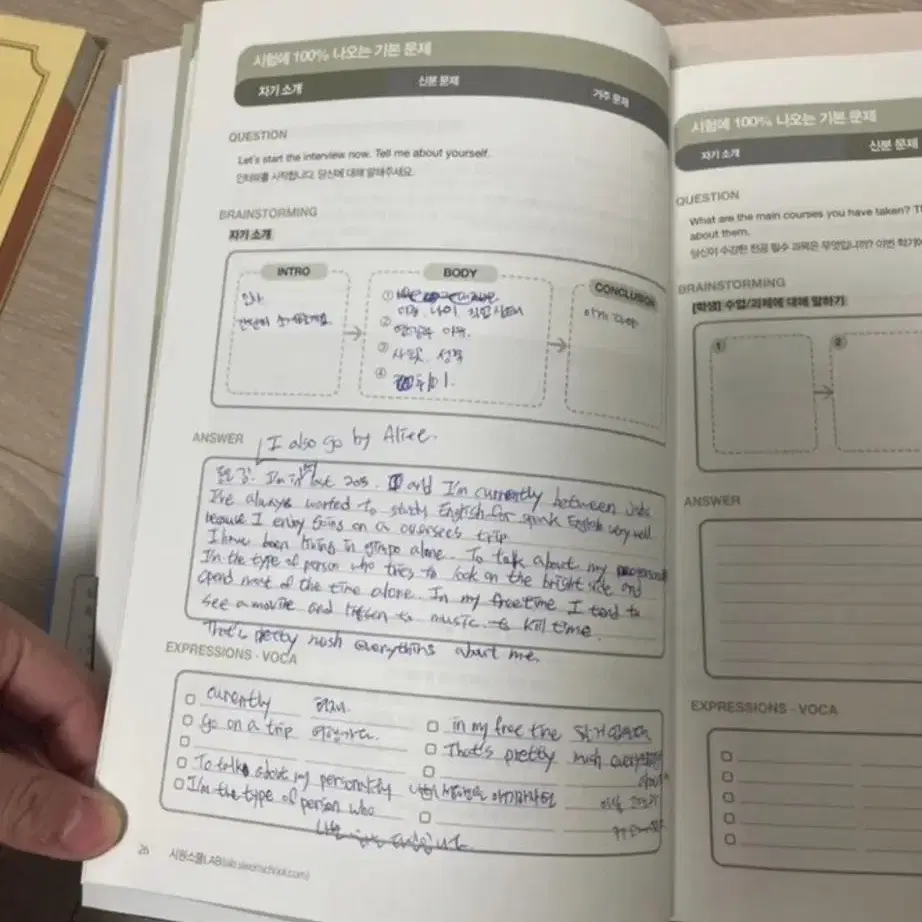 시험에 100% 나오는 기본 문제
자기 소개 신분 문제 거주 문제
QUESTION
Let's start the interview now. Tell me about yourself.
인터뷰를 시작합니다. 당신에 대해 말해주세요.
BRAINSTORMING
자기 소개
INTRO
인사
BODY
①
이름, 나이, 직업
②
③ 사는곳, 성격
④ 취미.
CONCLUSION
ANSWER I also go by Alice.
and I'm currently between jobs
I've always wanted to study English for speak English very well
because I enjoy going on a oversees trip
I have been living in gimpo alone. To talk about my
I'm the type of person who tries to look on the bright side and
spend most of the time alone. In my free time I tend to
see a movie and listen to music to kill time.
That's pretty mush everything about me.
EXPRESSIONS · VOCA
curently 현재.
go on a trip 여행가다.
To talk about my personality
I'm the type of person who
in my free time
That's pretty mush everything
about
26 시원스쿨LAB(lab.siwonschool.com)
시험에 100% 나오는 기본 문제
자기 소개 신분 문제
QUESTION
What are the main courses you have taken?
about them.
당신이 수강한 전공 필수 과목은 무엇입니까? 이번 학기에
BRAINSTORMING
[학생] 수업/과제에 대해 말하기
1 2
ANSWER
EXPRESSIONS · VOCA